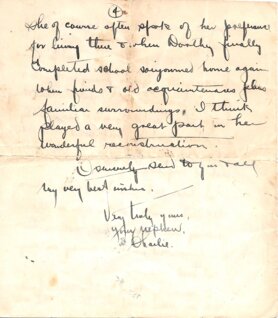 4
She of course often spoke of her preference
for living there & when Dorothy finally
completed school sojourned home again
when funds & old acquaintances plus
familiar surroundings, I think
played a very great part in her
wonderful reconstruction.
I sincerely send to you all
my very best wishes.
Very truly yours,
your nephew,
Charlie.